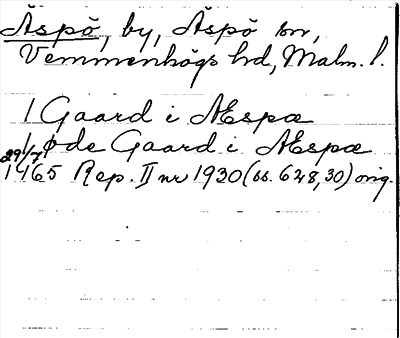 Äspö, by, Äspö sn,
Vemmenhögs hd, Malm. l.
1 Gaard i Æspæ
1 øde Gaard i Æspæ
29/7
1465 Rep. II nr 1930 (ss. 628, 30) orig.